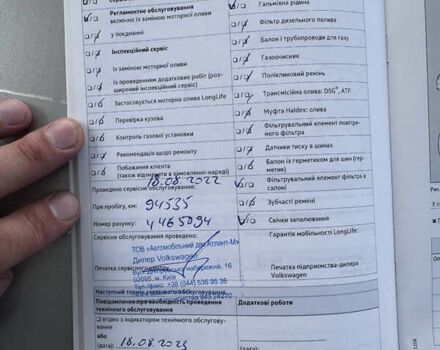 Регламентне обслуговування
включно із заміною моторної оливи
у поєднанні
Інспекційний сервіс
із заміною моторної оливи
із проведенням додаткових робіт (роз-
ширений інспекційний сервіс)
Застосовується моторна олива LongLife
Перевірка кузова
Контроль газової установки
Рекомендація щодо ремонту
Побажання клієнта
(також відмітити в замовленні-наряді)
Проведено сервісне обслуговування: 18.08.2022
При пробігу, км: 94535
Номер рахунку: 4465094
Сервісне обслуговування проведено:
ТОВ «Автомобільний дім Атлант-М»
Дилер Volkswagen
набережна, 16
02095, м. Київ
Тел./факс +38 (044) 536 95 36
Печатка сервісного
Наступний термін сервісного обслуговування
Повідомлення про необхідність проведення
технічного обслуговування
згідно з індикатором технічного обслугову-
вання
або
(дата): 18.08.2023
Гальмівна рідина
Фільтр дизельного палива
Балон і трубопроводи для газу
Газоочисник
Полікліновий ремінь
Трансмісійна олива: DSG®, ATF
Муфта Haldex: олива
Фільтрувальний елемент повітря-
ного фільтра
Датчики тиску в шинах
Балон із герметиком для шин (гер-
метик)
Фільтрувальний елемент фільтра в
салоні
Зубчасті ремені
Свічки запалювання
Гарантія мобільності LongLife:
Печатка підприємства-дилера
Volkswagen
Додаткові роботи